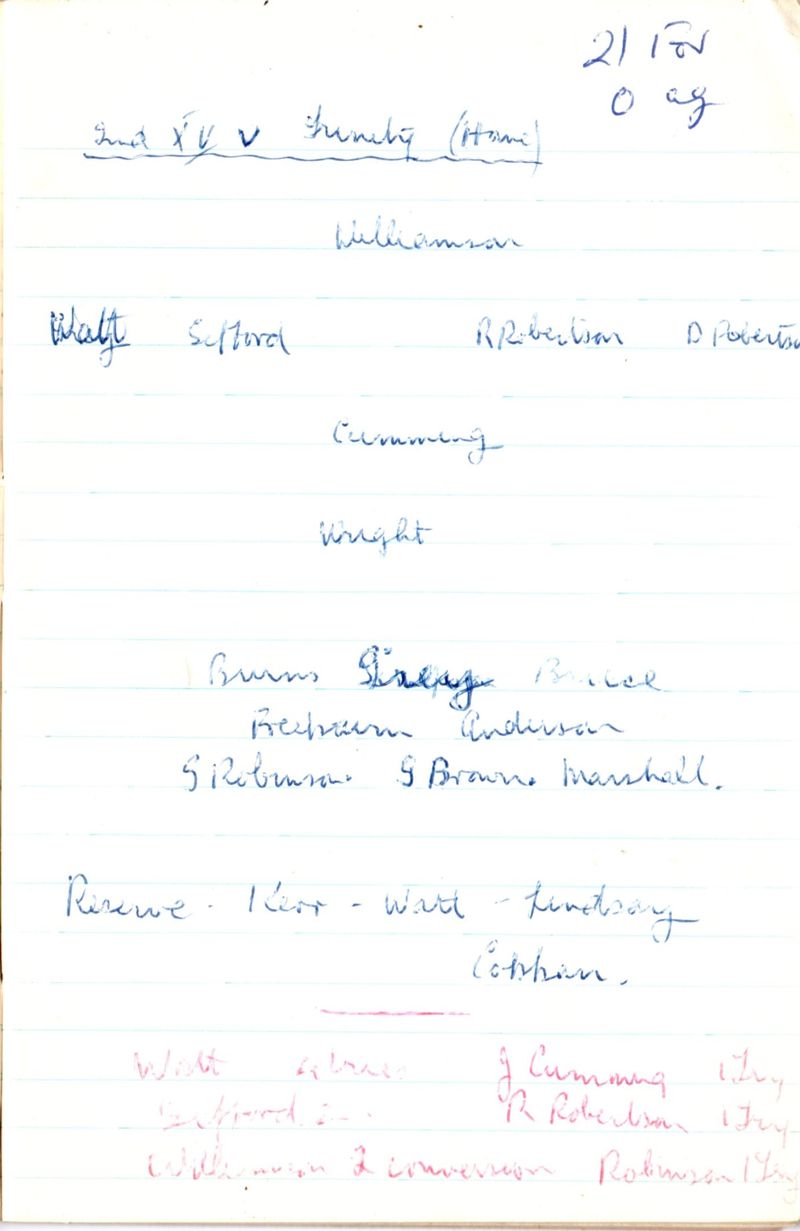 21 For
0 ag
2nd XV v Trinity (Home)
Williamson
Watt Sefford R Robertson D Robertso
Cumming
Wright
Burns Bruce
Anderson
G Robinson. G Brown. Marshall.
Reserve - Kerr - Watt - Lindsay
Watt J Cumming 1 Try
Sefford 2 R Robertson 1 Try
Williamson 2 conversion Robinson 1 Try